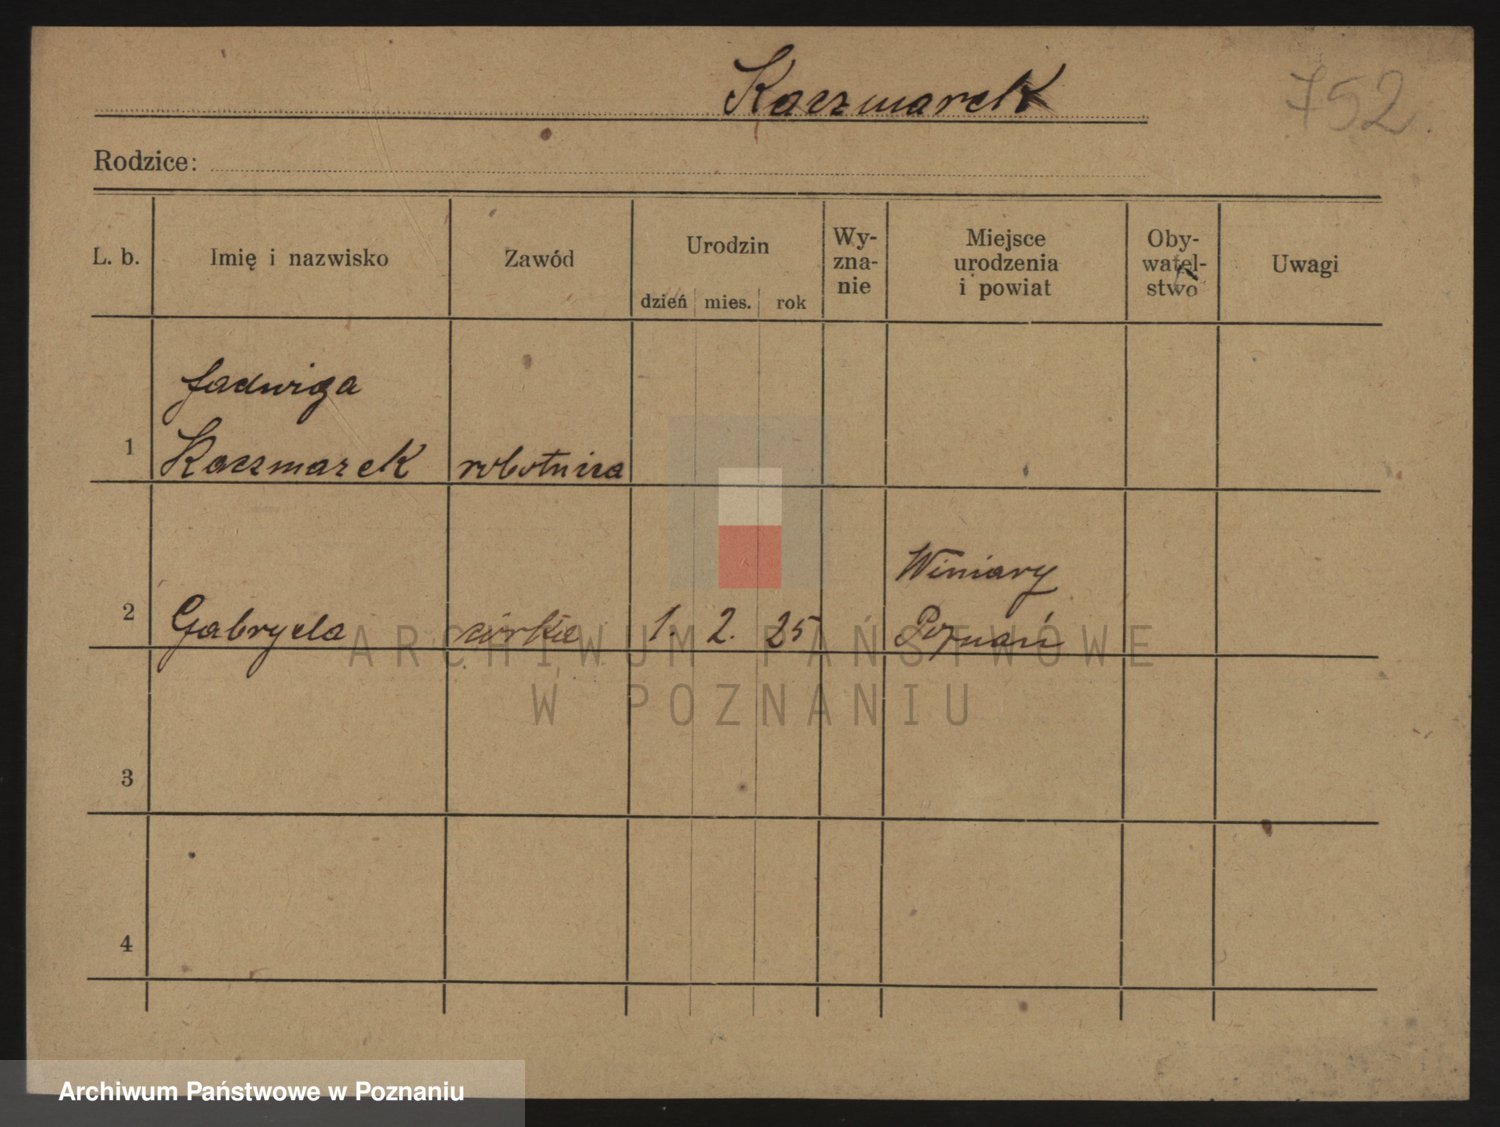 Kaczmarek
752.
Rodzice:
L. b. Imię i nazwisko Zawód Urodzin dzień mies. rok Wy-
zna-
nie Miejsce
urodzenia
i powiat Oby-
watel-
stwo Uwagi
Jadwiga
1 Kaczmarek robotnica
Winiary
2 Gabryela córka 1. 2. 25 Poznań
3
4
ARCHIWUM PAŃSTWOWE
W POZNANIU
Archiwum Państwowe w Poznaniu